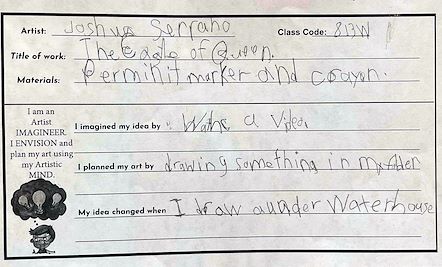 Artist: Joshua Serrano Class Code: 813W
Title of work: The of Queen.
Materials: Perminit marker and crayon.
I am an
Artist
IMAGINEER.
I ENVISION and
plan my art using
my Artistic
MIND.
I imagined my idea by Wathc a Video
I planned my art by drawing something in my
My idea changed when I draw aunder Waterhouse